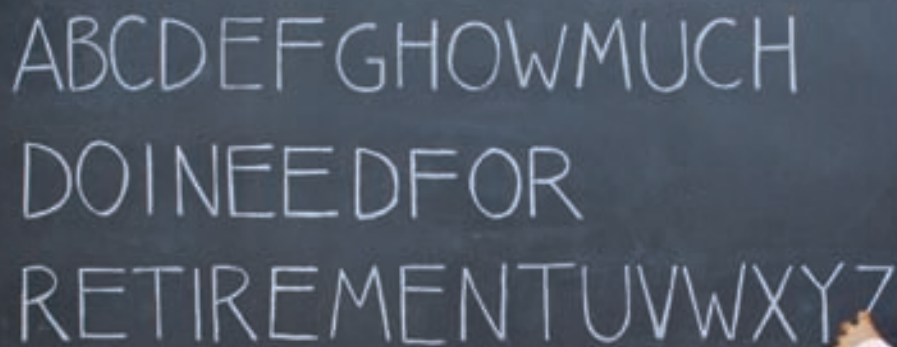 ABCDEFGHOWMUCH
DOINEEDFOR
RETIREMENTUVWXYZ